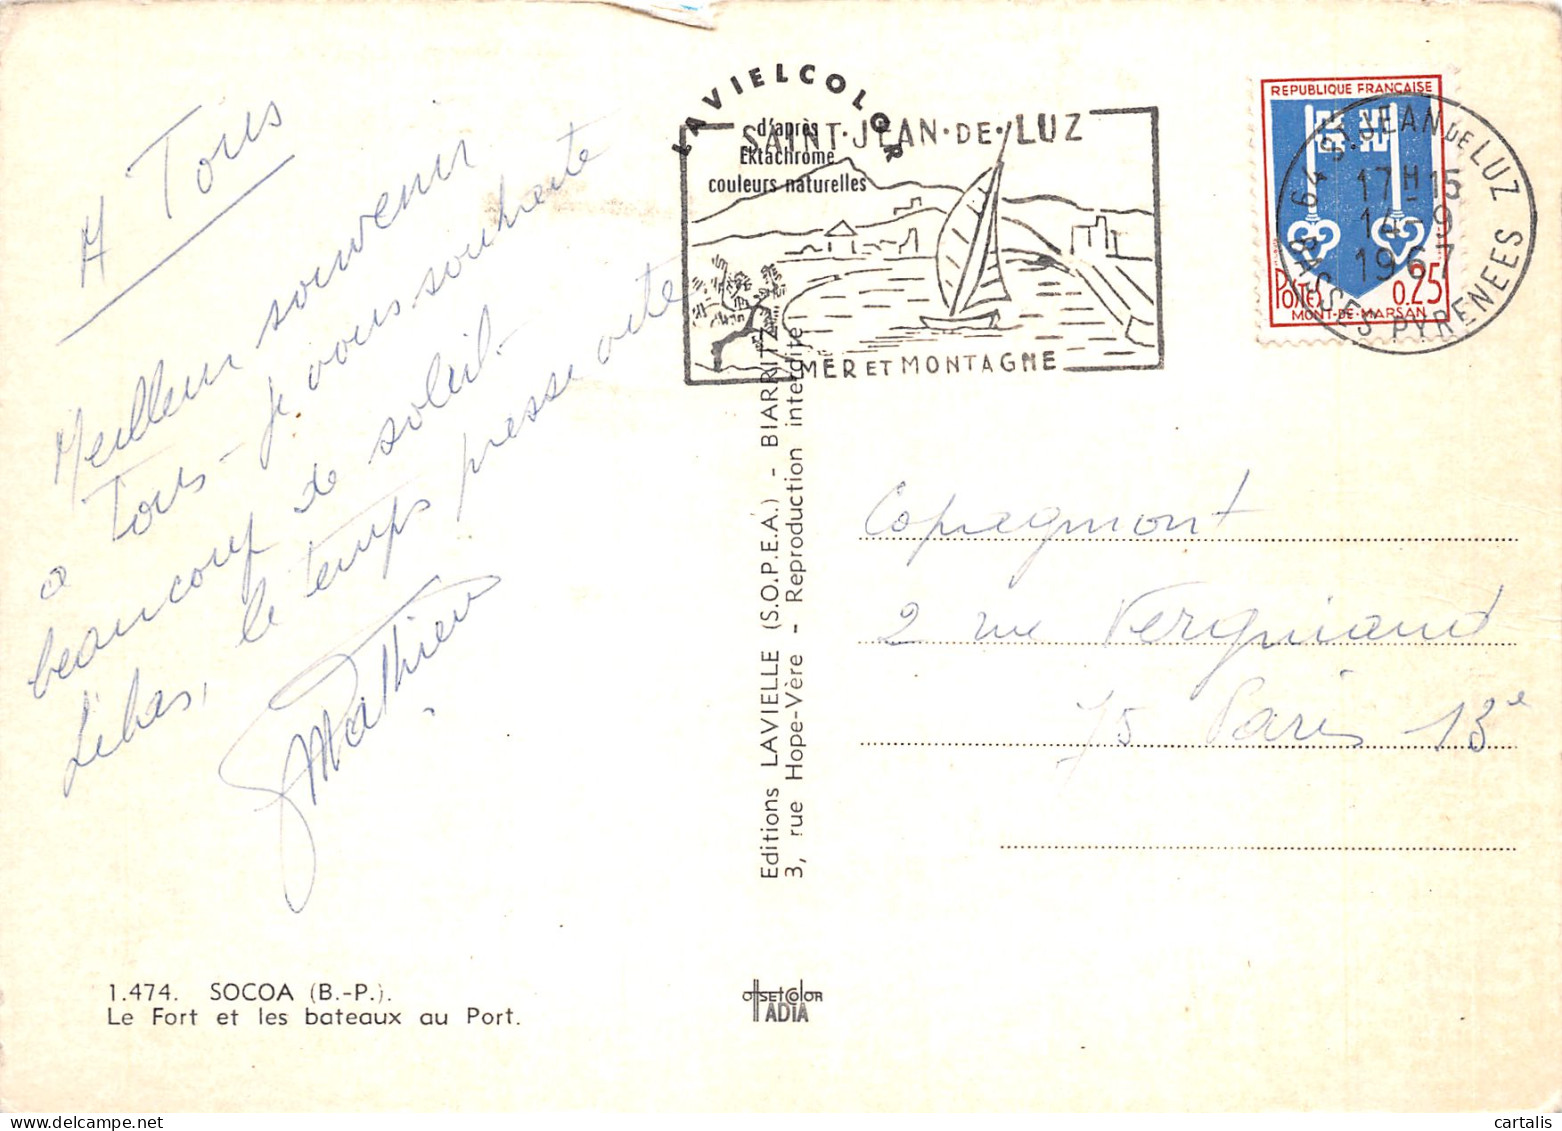 A Tous
Meilleur souvenir
à Tous - je vous souhaite
beaucoup de soleil.
Là bas, le temps passe vite
Mathieu
1.474. SOCOA (B.-P.).
Le Fort et les bateaux au Port.
LAVIELCOLOR
d'après
Ektachrome
couleurs naturelles
SAINT·JEAN·DE·LUZ
MER ET MONTAGNE
Editions LAVIELLE (S.O.P.E.A.) - BIARRITZ
3, rue Hope-Vère - Reproduction interdite
OFFSETCOLOR
IADIA
REPUBLIQUE FRANÇAISE
POSTES 0.25
MONT-DE-MARSAN
39 ST JEAN DE LUZ
17H15
14-9
1967
BASSES PYRENEES
Copagmont
2 rue Vergniaud
75 Paris 13e
cartalis